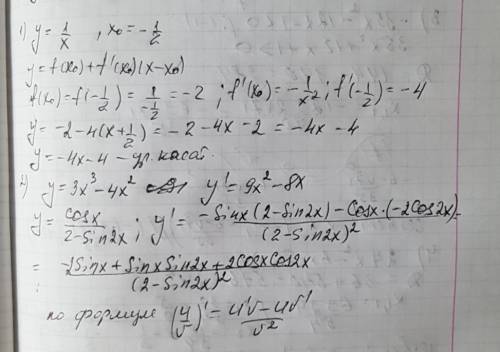 1) y = 1/x , x₀ = -1/2
y = f(x₀) + f'(x₀)(x - x₀)
f(x₀) = f(-1/2) = 1/(-1/2) = -2 ; f'(x₀) = -1/x² ; f'(-1/2) = -4
y = -2 - 4(x + 1/2) = -2 - 4x - 2 = -4x - 4
y = -4x - 4 - ур. касат.
2) y = 3x³ - 4x² y' = 9x² - 8x
y = cosx/(2 - sin2x) ; y' = (-sinx(2 - sin2x) - cosx·(-2cos2x))/(2 - sin2x)² =
= (-2sinx + sinx sin2x + 2cosx cos2x)/(2 - sin2x)²
по формуле (u/v)' = (u'v - uv')/v²